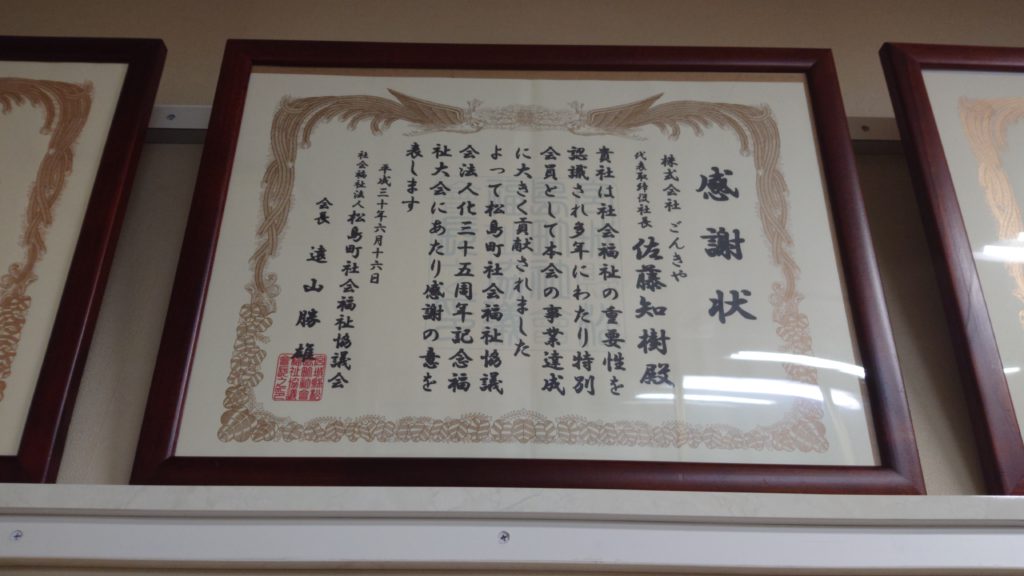 感謝状
株式会社 ごんきや
代表取締役社長 佐藤知樹 殿
貴社は社会福祉の重要性を
認識され多年にわたり特別
会員として本会の事業達成
に大きく貢献されました
よって松島町社会福祉協議
会法人化三十五周年記念福
祉大会にあたり感謝の意を
表します
平成三十年六月十六日
社会福祉法人 松島町社会福祉協議会
会長 遠山勝雄